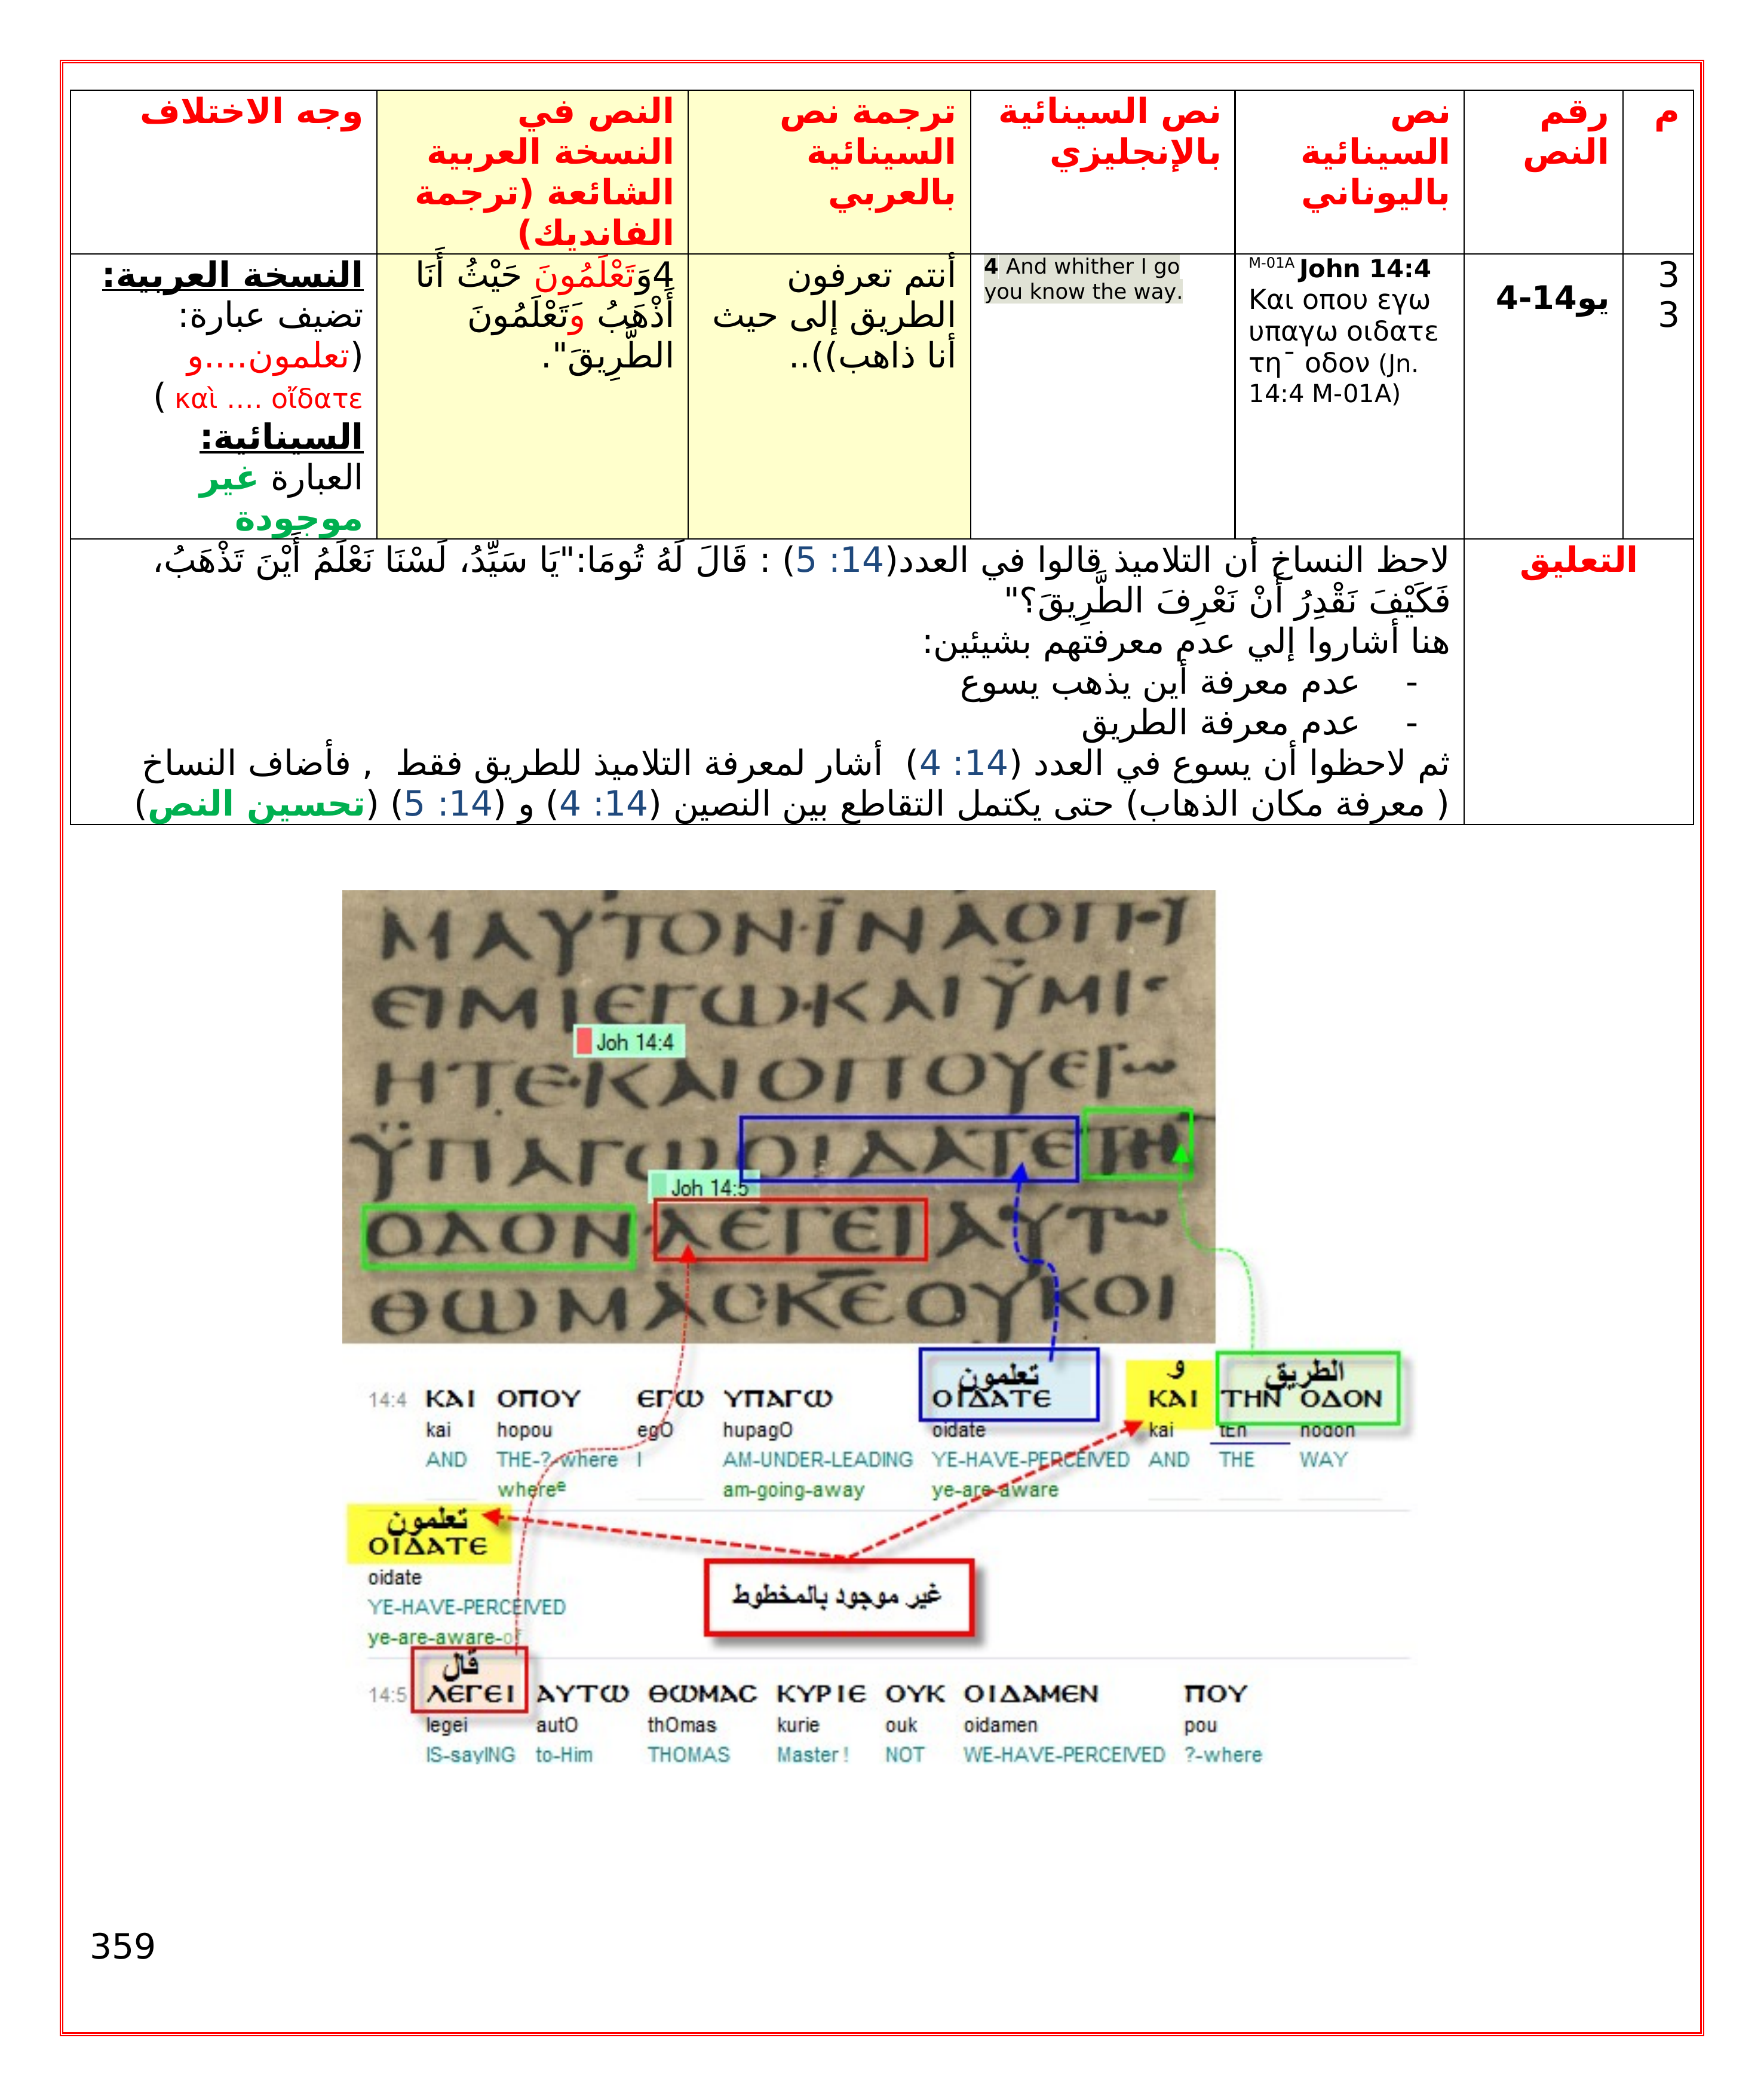 م
رقم
النص
نص
السينائية
باليوناني
نص السينائية
بالإنجليزي
ترجمة نص
السينائية
بالعربي
النص في
النسخة العربية
الشائعة (ترجمة
الفانديك)
وجه الاختلاف
3
3
يو14-4
M-01A John 14:4
Και οπου εγω
υπαγω οιδατε
τη¯ οδον (Jn.
14:4 M-01A)
4 And whither I go
you know the way.
أنتم تعرفون
الطريق إلى حيث
أنا ذاهب))..
4وَتَعْلَمُونَ حَيْثُ أَنَا
أَذْهَبُ وَتَعْلَمُونَ
الطَّرِيقَ".
النسخة العربية:
تضيف عبارة:
(تعلمون....و
καὶ .... οἴδατε )
السينائية:
العبارة غير
موجودة
التعليق
لاحظ النساخ أن التلاميذ قالوا في العدد(14: 5) : قَالَ لَهُ تُومَا:"يَا سَيِّدُ، لَسْنَا نَعْلَمُ أَيْنَ تَذْهَبُ،
فَكَيْفَ نَقْدِرُ أَنْ نَعْرِفَ الطَّرِيقَ؟"
هنا أشاروا إلي عدم معرفتهم بشيئين:
- عدم معرفة أين يذهب يسوع
- عدم معرفة الطريق
ثم لاحظوا أن يسوع في العدد (14: 4) أشار لمعرفة التلاميذ للطريق فقط , فأضاف النساخ
( معرفة مكان الذهاب) حتى يكتمل التقاطع بين النصين (14: 4) و (14: 5) (تحسين النص)
ΜΑΥΤΟΝ·ΪΝΑΟΠ
ΕΙΜΙΕΓΩ·ΚΑΙΫΜΙ
Joh 14:4
ΗΤΕ·ΚΑΙΟΠΟΥΕΓω
ΫΠΑΓΩΟΙΔΑΤΕΤΗ
Joh 14:5
ΟΔΟΝ·ΛΕΓΕΙΑΥΤω
ΘΩΜΑС·ΚΕΟΥΚΟΙ
تعلمون و الطريق
14:4 ΚΑΙ ΟΠΟΥ ΕΓΩ ΥΠΑΓΩ ΟΙΔΑΤΕ ΚΑΙ ΤΗΝ ΟΔΟΝ
kai hopou egO hupagO oidate kai tEn hodon
AND THE-?-where I AM-UNDER-LEADING YE-HAVE-PERCEIVED AND THE WAY
whereᵉ am-going-away ye-are-aware
تعلمون
ΟΙΔΑΤΕ
oidate
غير موجود بالمخطوط
YE-HAVE-PERCEIVED
ye-are-aware-of
قال
14:5 ΛΕΓΕΙ ΑΥΤΩ ΘΩΜΑС ΚΥΡΙΕ ΟΥΚ ΟΙΔΑΜΕΝ ΠΟΥ
legei autO thOmas kurie ouk oidamen pou
IS-sayING to-Him THOMAS Master ! NOT WE-HAVE-PERCEIVED ?-where
359